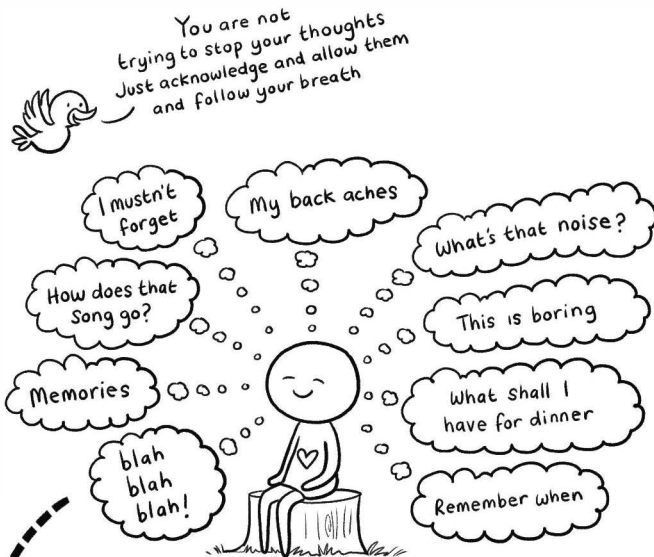 You are not
trying to stop your thoughts
Just acknowledge and allow them
and follow your breath
I mustn't
forget
My back aches
What's that noise?
How does that
song go?
This is boring
Memories
What shall I
have for dinner
blah
blah
blah!
Remember when